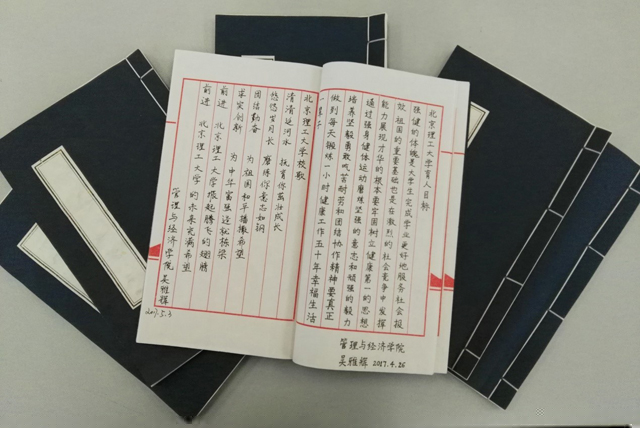 北京理工大学育人目标
强健的体魄是大学生完成学业更好地服务社会报
效祖国的重要基础也是在激烈的社会竞争中发挥
能力展现才华的根本要牢固树立健康第一的思想
通过强身健体运动磨练坚强的意志和顽强的毅力
培养坚毅勇敢吃苦耐劳和团结协作精神要真正
做到每天锻炼一小时健康工作五十年幸福生活
一辈子
管理与经济学院
吴雅辉 2017.4.26
北京理工大学校歌
清清延河水 抚育你茁壮成长
悠悠岁月长 磨炼你意志如钢
团结勤奋 为祖国和平播撒希望
求实创新 为中华富强就栋梁
前进 北京理工大学振起腾飞的翅膀
前进 北京理工大学的未来充满希望
管理与经济学院吴雅辉
2017.5.3